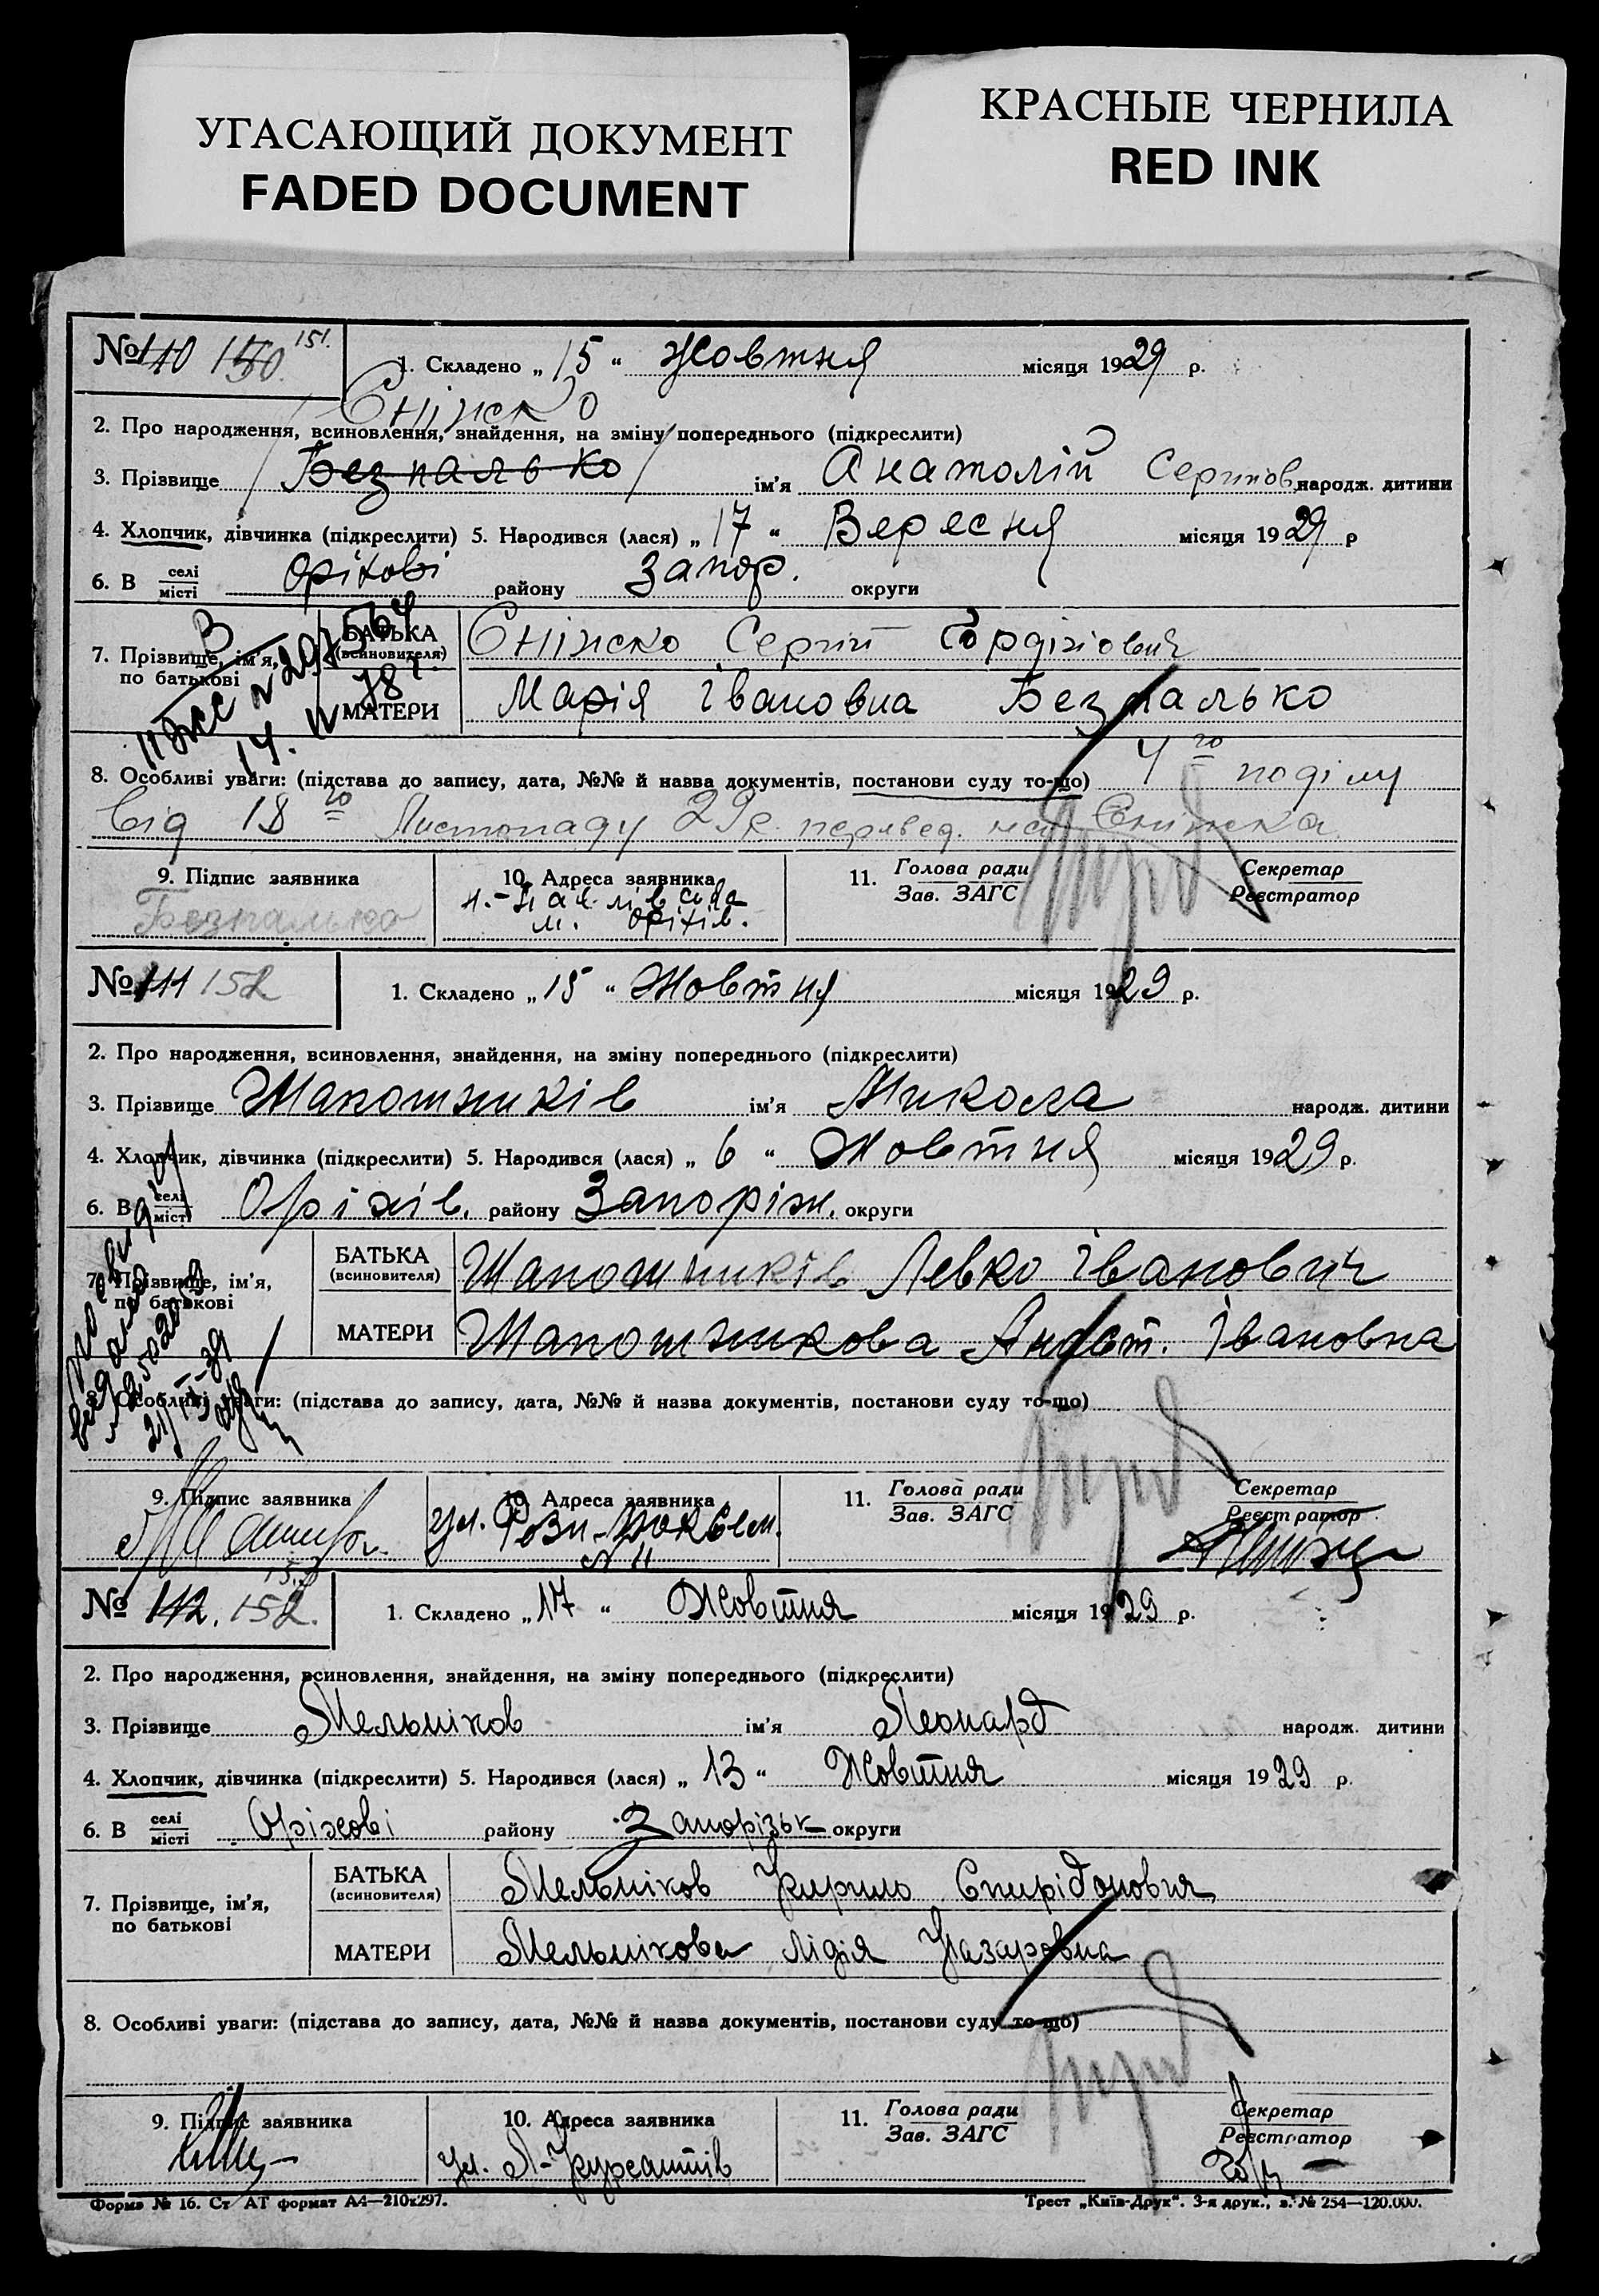 УГАСАЮЩИЙ ДОКУМЕНТ
FADED DOCUMENT
КРАСНЫЕ ЧЕРНИЛА
RED INK
№ 110 150 151.
1. Складено „ 15 “ Жовтня місяця 1929 р.
2. Про народження, всиновлення, знайдення, на зміну попереднього (підкреслити)
3. Прізвище Безпалько ім'я Анатолій народж. дитини
4. Хлопчик, дівчинка (підкреслити) 5. Народився (лася) „ 17 “ Вересня місяця 1929 р
6. В селі місті Оріхові району Запор. округи
7. Прізвище, ім'я, по батькові
БАТЬКА (всиновителя) Сергій
МАТЕРИ Марія Івановна Безпалько
8. Особливі уваги: (підстава до запису, дата, №№ й назва документів, постанови суду то-що) поділу
від 18го Листопаду 29р.
9. Підпис заявника
Безпалько
10. Адреса заявника
м. Оріхів.
11. Голова ради
Зав. ЗАГС
Секретар
Реєстратор
№ 111 152
1. Складено „ 15 “ Жовтня місяця 1929 р.
2. Про народження, всиновлення, знайдення, на зміну попереднього (підкреслити)
3. Прізвище Шапошників ім'я Микола народж. дитини
4. Хлопчик, дівчинка (підкреслити) 5. Народився (лася) „ 6 “ Жовтня місяця 1929 р.
6. В селі місті Оріхів. району Запоріж. округи
7. Прізвище, ім'я, по батькові
БАТЬКА (всиновителя) Шапошників Левко Іванович
МАТЕРИ Шапошникова Івановна
8. Особливі уваги: (підстава до запису, дата, №№ й назва документів, постанови суду то-що)
9. Підпис заявника
10. Адреса заявника
ул.
11. Голова ради
Зав. ЗАГС
Секретар
Реєстратор
№ 112. 152.
1. Складено „ 17 “ Жовтня місяця 1929 р.
2. Про народження, всиновлення, знайдення, на зміну попереднього (підкреслити)
3. Прізвище Мельніков ім'я Леонард народж. дитини
4. Хлопчик, дівчинка (підкреслити) 5. Народився (лася) „ 13 “ Жовтня місяця 1929 р.
6. В селі місті Оріхові району Запорізьк округи
7. Прізвище, ім'я, по батькові
БАТЬКА (всиновителя) Мельніков Кирило Спирідонович
МАТЕРИ Мельнікова Лідія Назаровна
8. Особливі уваги: (підстава до запису, дата, №№ й назва документів, постанови суду то-що)
9. Підпис заявника
10. Адреса заявника
ул. Л-Курсантів
11. Голова ради
Зав. ЗАГС
Секретар
Реєстратор
Форма № 16. Ст АТ формат А4—210х297.
Трест „Київ-Друк“. 3-я друк., з. № 254—120.000.